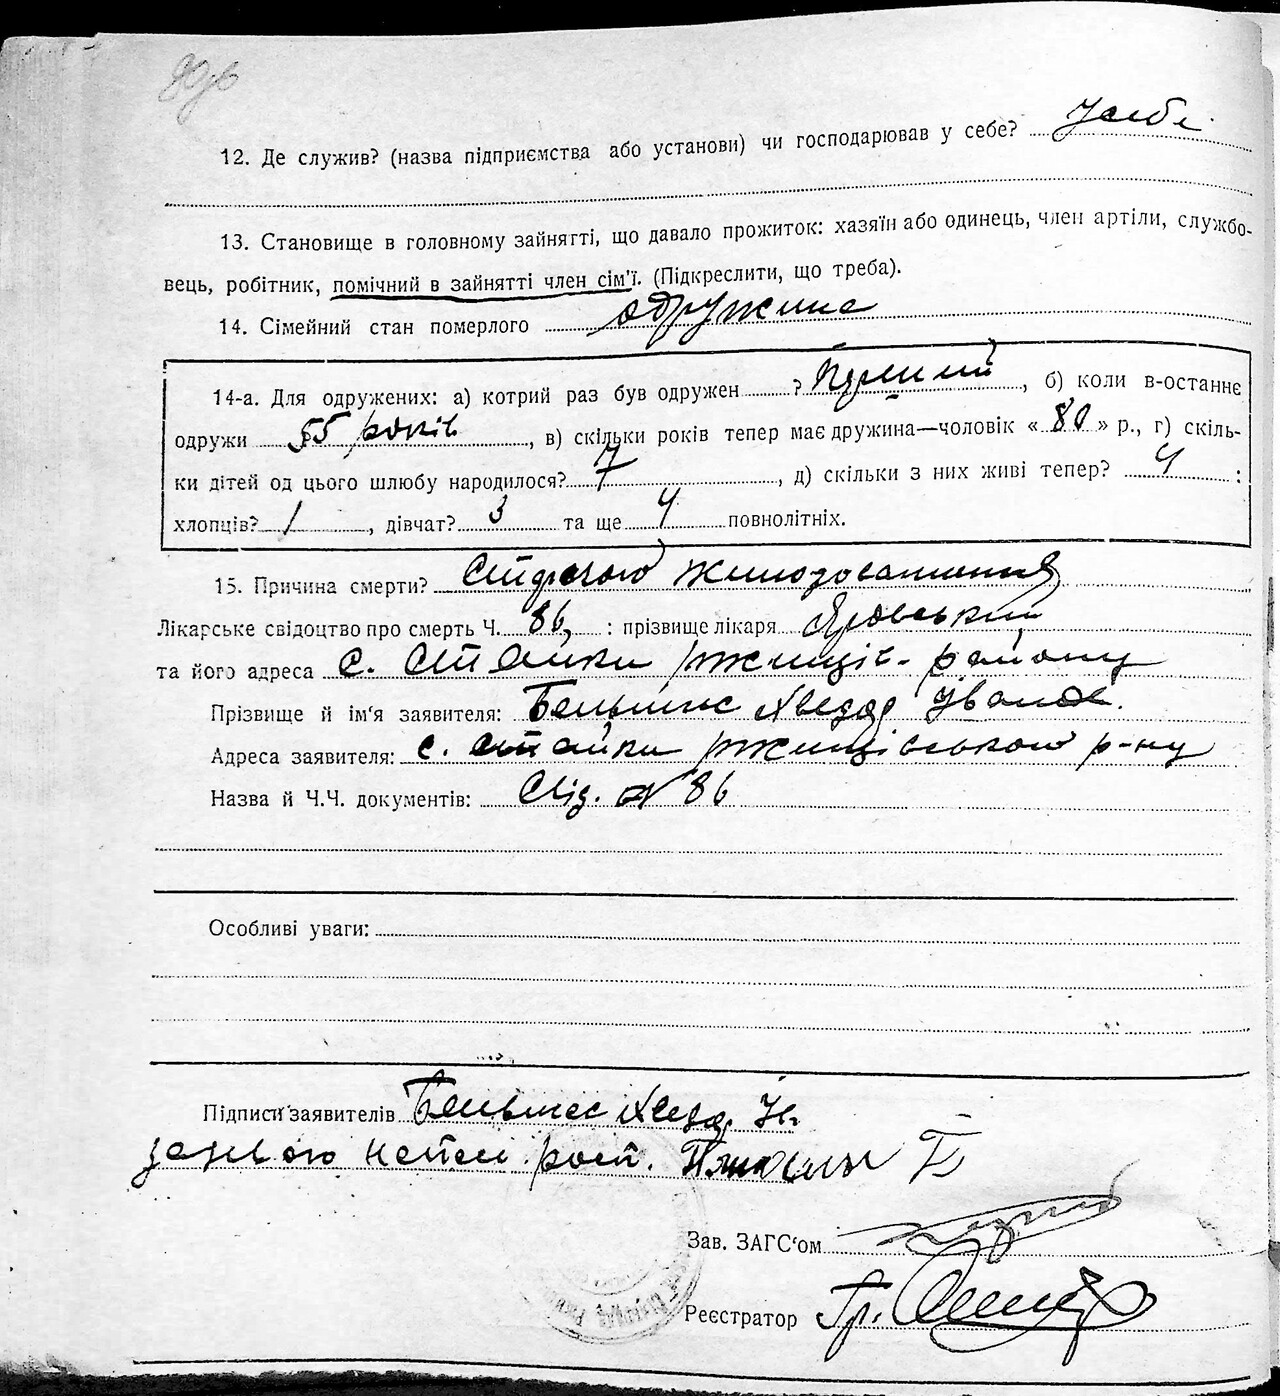 12. Де служив? (назва підприємства або установи) чи господарював у себе? У себе
13. Становище в головному зайнятті, що давало прожиток: хазяїн або одинець, член артіли, службо-
вець, робітник, помічний в зайнятті член сім'ї. (Підкреслити, що треба).
14. Сімейний стан померлого одружина
14-а. Для одружених: а) котрий раз був одружен ? Перший, б) коли в-останнє
одружи 55 років, в) скільки років тепер має дружина—чоловік « 80 » р., г) скіль-
ки дітей од цього шлюбу народилося? 7, д) скільки з них живі тепер? 4 :
хлопців? 1, дівчат? 3 та ще 4 повнолітніх.
15. Причина смерти?
Лікарське свідоцтво про смерть Ч. 86, : прізвище лікаря Яровський
та його адреса с. Стайки Ржищів. району
Прізвище й ім'я заявителя: Хведор Иванов.
Адреса заявителя: с. Стайки Ржищівського р-ну
Назва й Ч.Ч. документів: Свід. № 86
Особливі уваги:
Підписи заявителів Хвед. Ив.
Зав. ЗАГС'ом
Реєстратор Гр.